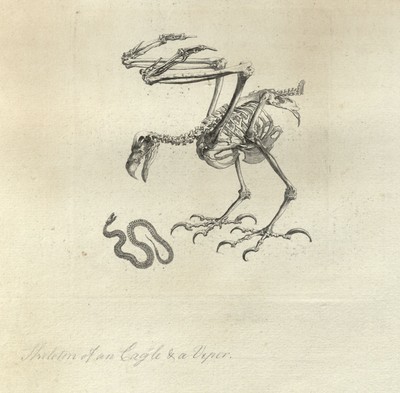 Skeleton of an Eagle & a Viper.